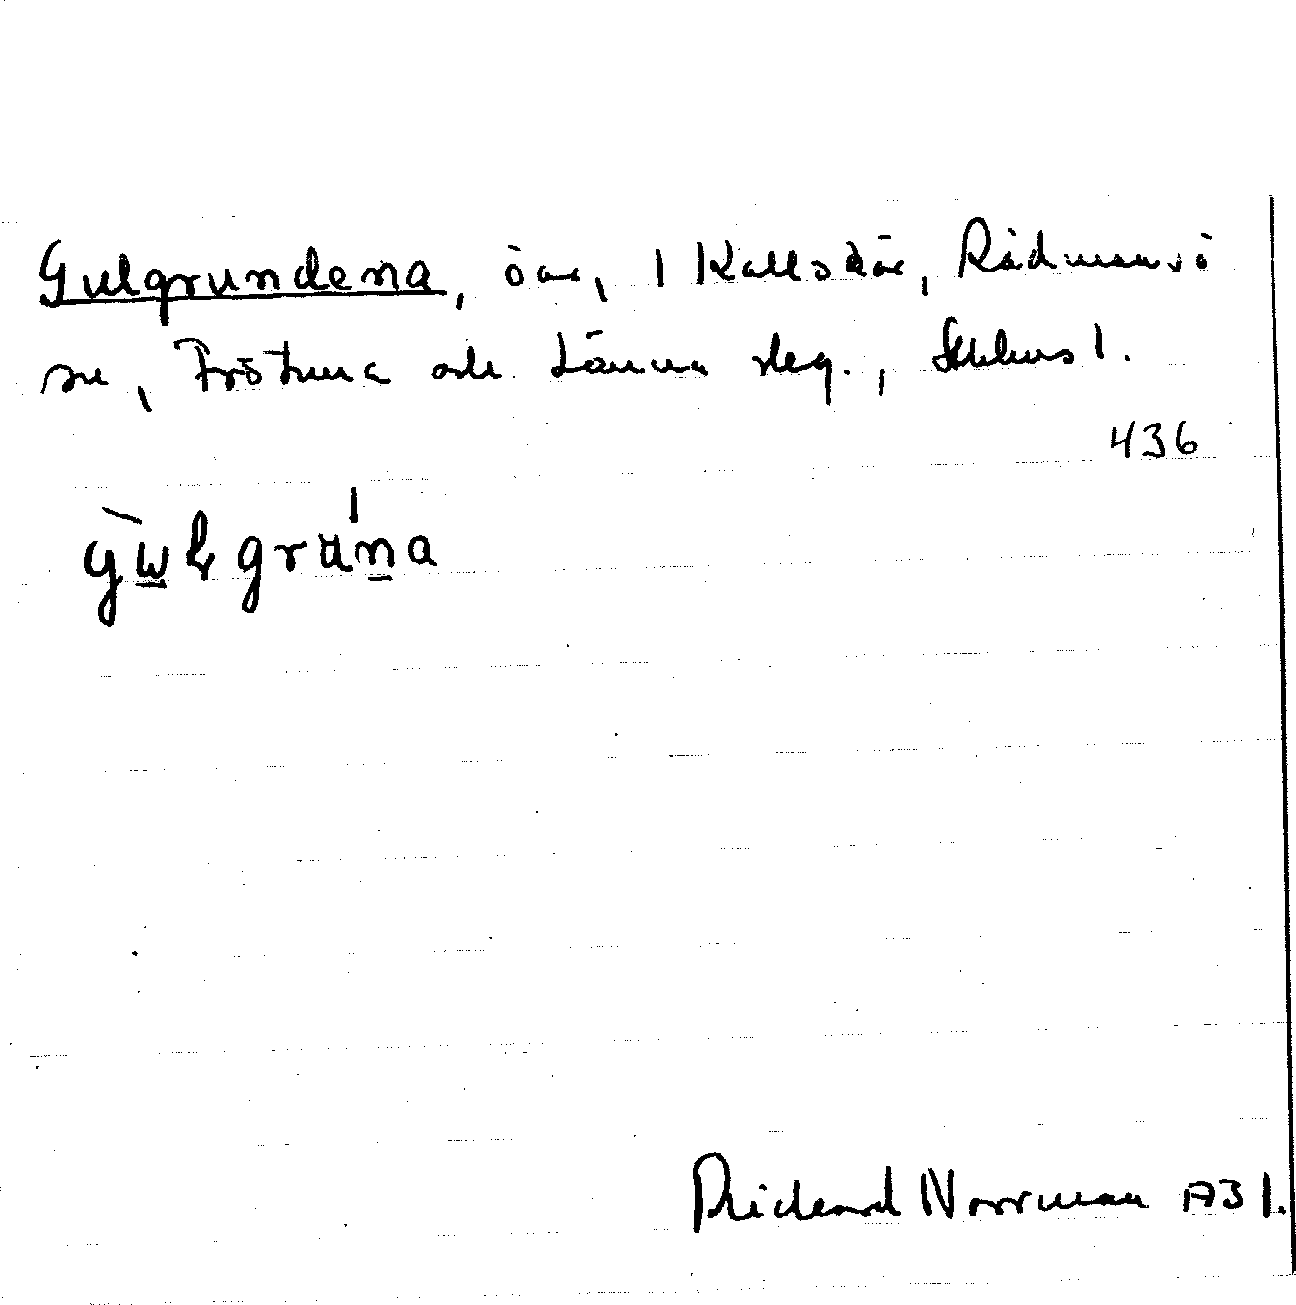 Gulgrundena, öar, i Kallskär, Rådmansö
sn, Frötuna och Länna skeg., Sthlms l.
436
gu̲lgruṉa
Rickard Norrman 1931.